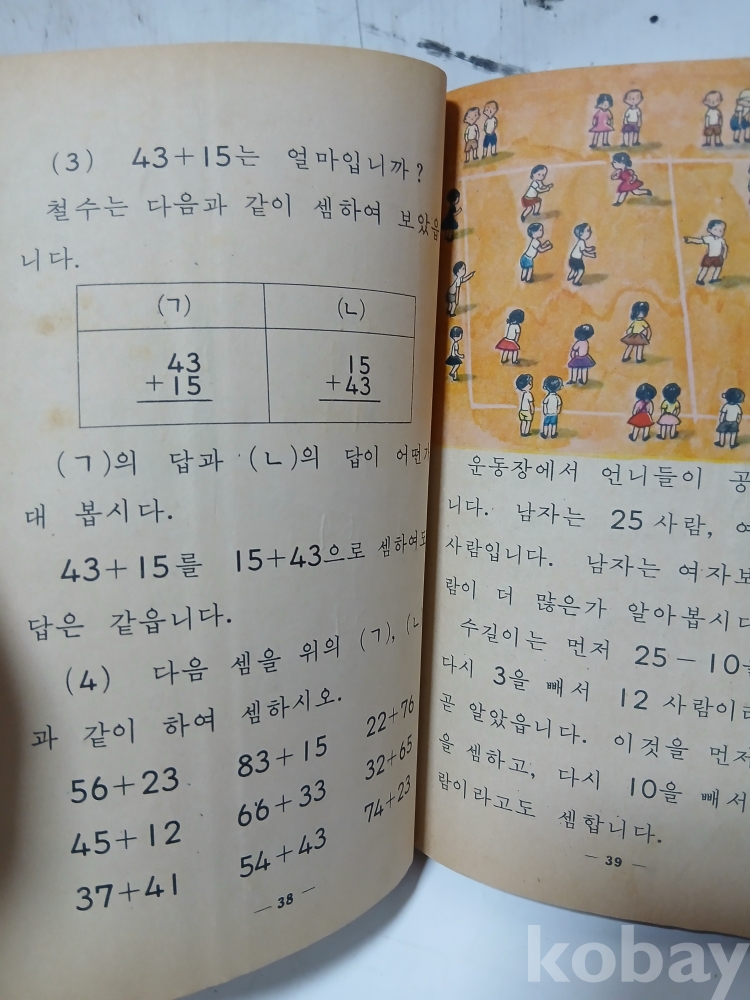 (3) 43+15는 얼마입니까?
철수는 다음과 같이 셈하여 보았읍
니다.
(ㄱ) (ㄴ)
43 15
+15 +43
(ㄱ)의 답과 (ㄴ)의 답이
대 봅시다.
43+15를 15+43으로 셈하여도
답은 같읍니다.
(4) 다음 셈을 위의 (ㄱ), (ㄴ)
과 같이 하여 셈하시오.
56+23 83+15 22+76
45+12 66+33 32+65
37+41 54+43 74+23
— 38 —
운동장에서 언니들이 공
니다. 남자는 25 사람,
사람입니다. 남자는 여자보
람이 더 많은가 알아봅시다
수길이는 먼저 25-10을
다시 3을 빼서 12 사람이라
곧 알았읍니다. 이것을 먼저
을 셈하고, 다시 10을 빼서
람이라고도 셈합니다.
— 39 —
kobay